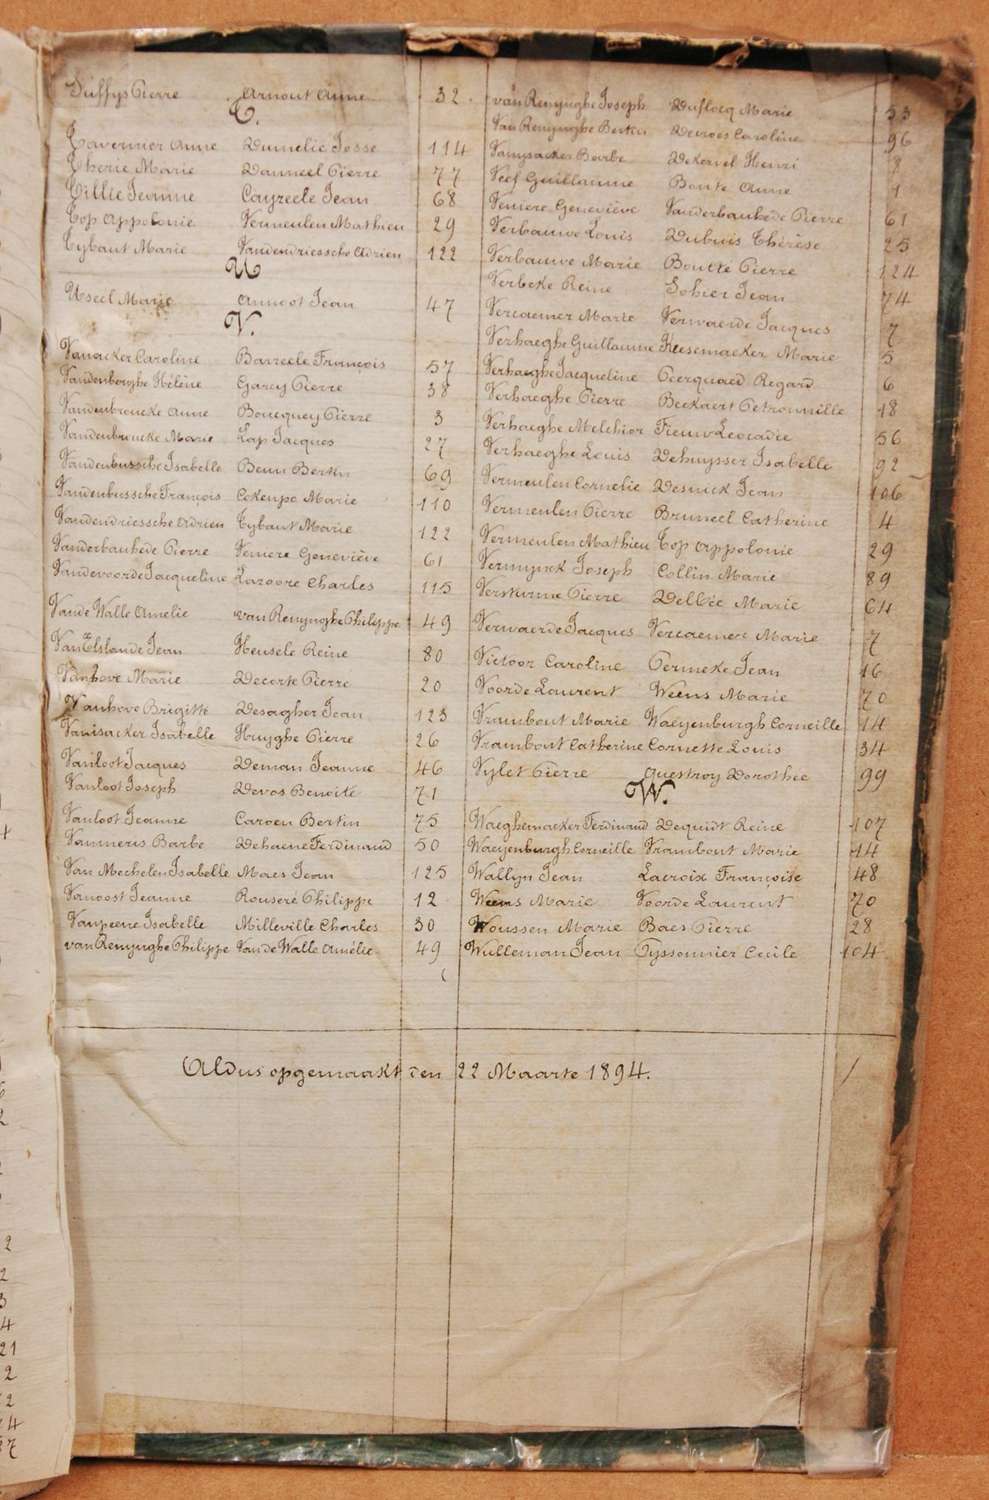 Suffys Pierre Arnout Anne 32
T.
Tavernier Anne Dumelie Josse 114
Therie Marie Danneel Pierre 77
Tillie Jeanne Cayzeele Jean 68
Top Appolonie Vermeulen Mathieu 29
Tybaut Marie Vandendriessche Adrien 122
U
Useel Marie Annoot Jean 47
V.
Vanacker Caroline Barzeele François 57
Vandenberghe Hélène Garcy Pierre 38
Vandenbroucke Anne Boucquey Pierre 3
Vandenbroucke Marie Lap Jacques 27
Vandenbussche Isabelle Beun Bertin 69
Vandenbussche François Cokenpo Marie 110
Vandendriessche Adrien Tybaut Marie 122
Vanderbauhede Pierre Veniere Geneviève 61
Vandevoorde Jacqueline Lazoore Charles 115
Vande Walle Amelie van Renynghe Philippe 49
Van Elslande Jean Heusele Reine 80
Vanhove Marie Decorte Pierre 20
Vanhove Brigitte Desagher Jean 123
Vanisacker Isabelle Huyghe Pierre 26
Vanloot Jacques Deman Jeanne 46
Vanloot Joseph Devos Benoite 71
Vanloot Jeanne Caroen Bertin 75
Vanmeris Barbe Dehaene Ferdinand 50
Van Mechelen Isabelle Maes Jean 125
Vanoost Jeanne Rouseré Philippe 12
Vanpeene Isabelle Milleville Charles 30
van Renynghe Philippe Van de Walle Amélie 49
van Renynghe Joseph Duflocq Marie 53
Van Renynghe Bertin Devroes Caroline 96
Vanysacker Barbe Dekervel Henri 8
Veef Guillaume Bonte Anne 1
Veniere Geneviève Vanderbauhede Pierre 61
Verbauwe Louis Dubuis Thérèse 25
Verbauwe Marie Boutté Pierre 124
Verbeke Reine Sohier Jean 74
Vercaemer Marie Verwaerde Jacques 7
Verhaeghe Guillaume Keesemacker Marie 5
Verhaeghe Jacqueline Pecquaed Regard 6
Verhaeghe Pierre Beckaert Petronnille 18
Verhaeghe Melchior Fieuw Leocadie 56
Verhaeghe Louis Dehuysser Isabelle 92
Vermeulen Cornelie Desnick Jean 106
Vermeulen Pierre Bruneel Catherine 4
Vermeulen Mathieu Top Appolonie 29
Vermynck Joseph Collin Marie 89
Versturme Pierre Delbée Marie 64
Verwaerde Jacques Vercaemer Marie 7
Victoor Caroline Permeke Jean 16
Voorde Laurent Weens Marie 70
Vrambout Marie Waeyenburgh Corneille 14
Vrambout Catherine Cornette Louis 34
Vylet Pierre Questroy Dorothée 99
W.
Waeghemacker Ferdinand Dequidt Reine 107
Waeyenburgh Corneille Vrambout Marie 14
Wallyn Jean Lacroix Françoise 48
Weens Marie Voorde Laurent 70
Woussen Marie Baes Pierre 28
Wulleman Jean Tyssonnier Cecile 104
Aldus opgemaakt den 22 Maarte 1894.